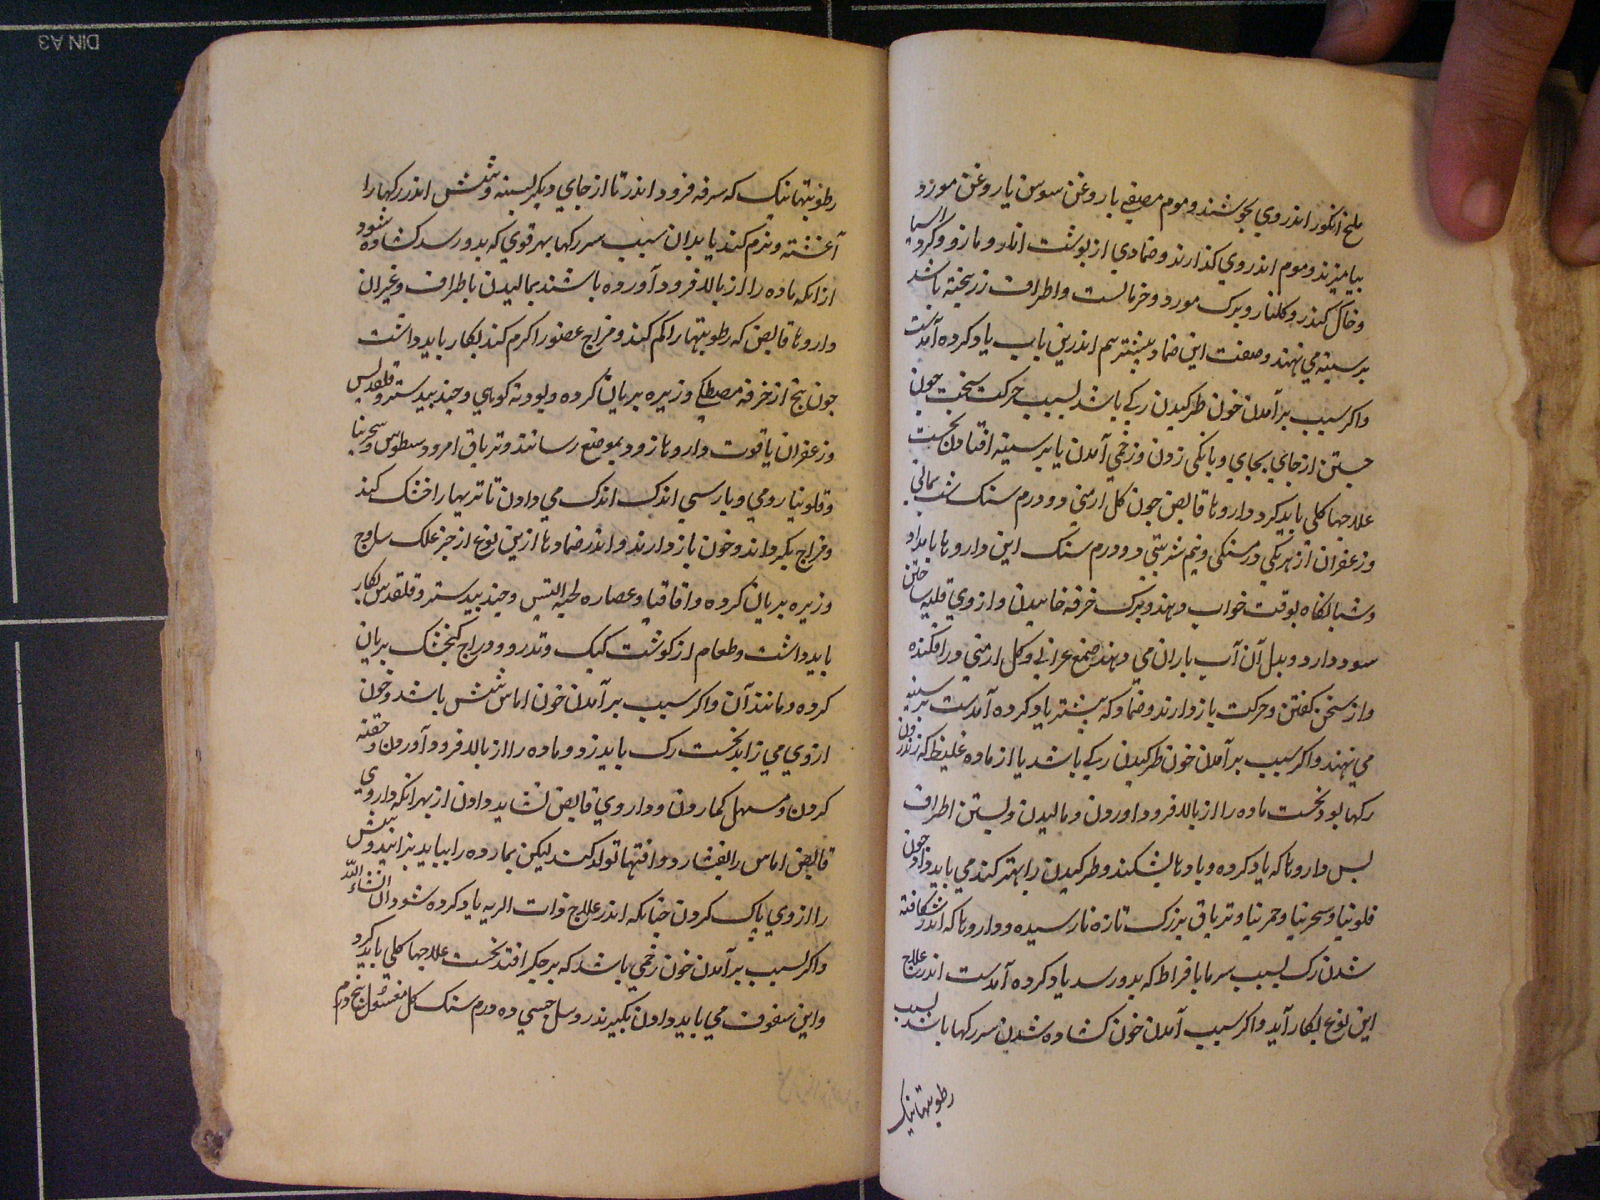 ملح انکور اندروي بجوشند و موم مصفي با روغن سوسن يا روغن مورد
بياميزند و موم اندروي کدارند و ضمادي از پوشت انار و مازو و کرد اسيا
و خاک کندر و کلنار و برک مورد و خرما لست و اطراف رز پخته باشد
بر سينه مي نهند و صفت اين ضماد پيشتر هم اندرين باب ياد کرده آمدست
واکر سبب بر آمدن خون طرکيدن رکي باشد بسبب حرکت سخت چون
جستن از جاي بجاي و بانکي زدن و زخمي آمدن يا بر سينه افتادن نخست
علاجها کلي بايد کرد و داروها قابض چون کل ارمني دو درم سنک شب يماني
و زعفران از هر يکي درمسنکي و نيم شربتي دو درم سنک اين داروها بامداد
و شبانکاه بوقت خواب دهند و برک خرفه خاييدن و از وي قليه ساختن
سود دارد و بدل آن آب باران مي دهند صمغ عرابي و کل ارمني درافکنده
و از سخن کفتن و حرکت باز دارند و ضماد که پيشتر ياد کرده آمدست بر سينه
مي نهند واکر سبب بر آمدن خون طرکيدن رکي باشد يا از ماده غليظ که اندرون
رکها بود نخست ماده را از بالا فرود اوردن و ماليدن و بستن اطراف
پس داروها که ياد کرده و بادها بشکند و طرکيدن را بهتر کند مي بايد داد چون
فلونيا و سجرينا و حمرينا و ترياق بزرک تازه نارسيده و داروها که اندر شکافته
شدن رک بسبب سرما بافراط که بدو رسد ياد کرده آمدست اندر علاج
اين نوع بکار آيد واکر سبب آمدن خون کشاده شدن سر رکها باشد بسبب
رطوبتهانيک
رطوبتهانيک که سرفه فرود اندر تا از جاي ديکر بسينه و شش اندر رکها را
آغشته و نرم کند يا بدان سبب سر رکها بهر قوي که بدو رسد کشاده شود
از انکه ماده را از بالا فرود آورده باشند بماليدن با طراف و غير ان
داروها قابض که رطوبتها را کم کند و مزاج عضو را کرم کند بکار بايد داشت
چون بيخ از خرفه مصطکي و زيره بريان کرده و پودنه کوهي و جندبيدستر و قلقديس
و زعفران يا قوت داروها زود بموضع رسانند و ترياق امرود سطوس و سجرينا
و فلونيا رومي و پارسي اندک اندک مي دادن تا تريها را خشک کند
و مزاج بکرداند و خون باز دارند و اندر ضمادها ازين نوع از جز علک ساذج
و زيره بريان کرده و اقاقيا و عصاره لحيه التيس و جندبيدستر و قلقديس بکار
بايد داشت و طعام از کوشت کبک و تدرو و دراج کنجشک بريان
کرده و مانند آن واکر سبب بر آمدن خون اماس شش باشد و خون
ازوي مي زايد نخست رک بايد زد و ماده را از بالا فرود آوردن و حقنه
کردن و مسهل کماردن و داروي قابض نشايد دادن از بهر انکه داروي
قابض اماس را بفشارد و افتها تولد کند ليکن بماده را ببايد پزانيد و شش
را ازوي پاک کردن چنانکه اندر علاج ذات الريه ياد کرده شود انشاءالله
واکر سبب بر آمدن خون زخمي باشد که بر جکر افتد نخست علاجها کلي بايد کرد
و اين سفوف مي بايد دادن بکيرند روسل جسي ده درم سنک کل مغسول پنج درم